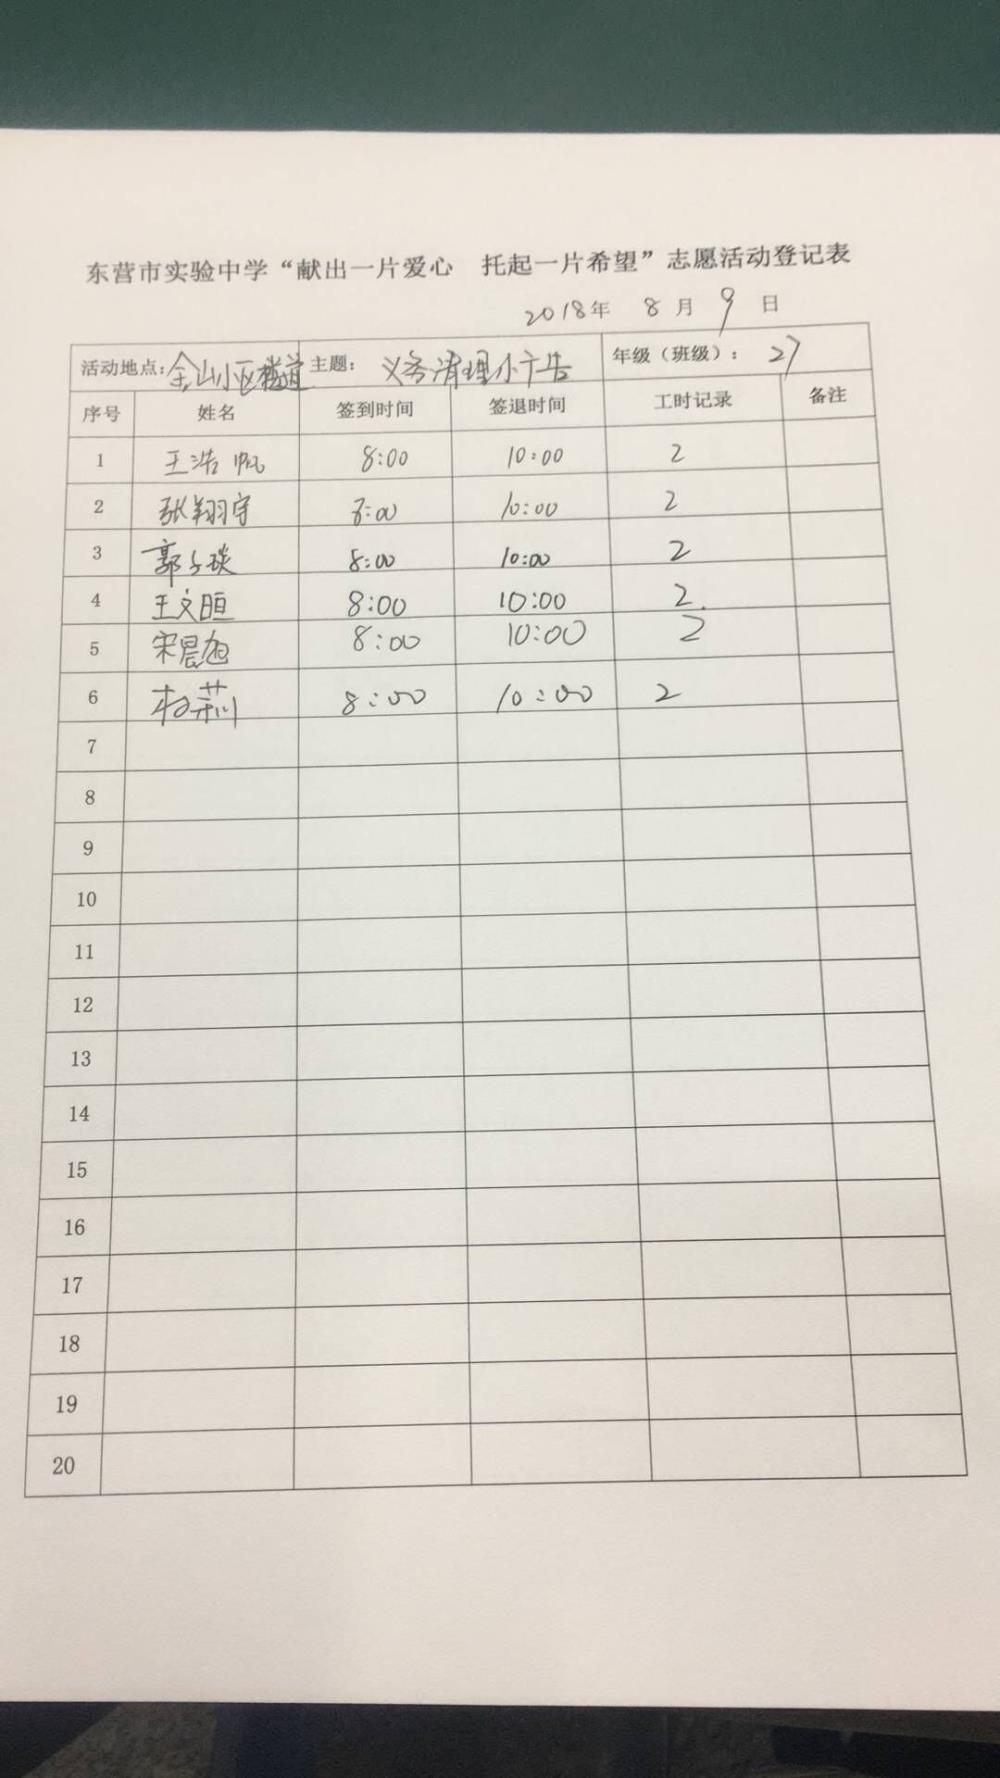 东营市实验中学“献出一片爱心　托起一片希望”志愿活动登记表
2018年 8 月 9 日
活动地点：金山小区楼道 主题： 义务清理小广告 年级（班级）： 27
序号 姓名 签到时间 签退时间 工时记录 备注
1 王浩帆 8:00 10:00 2
2 张翔宇 8:00 10:00 2
3 郭子琰 8:00 10:00 2
4 王文晅 8:00 10:00 2
5 宋晨旭 8:00 10:00 2
6 8:00 10:00 2
7
8
9
10
11
12
13
14
15
16
17
18
19
20